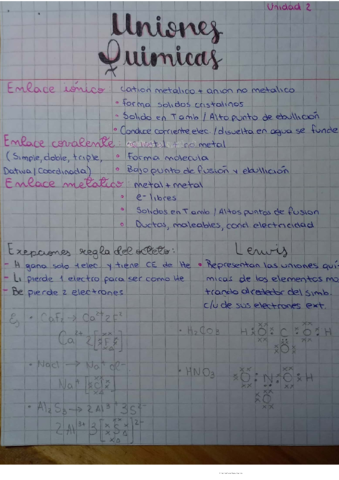 Unidad 2
Uniones
Químicas
Enlace iónico
• Cation metalico + anion no metalico
• Forma solidos cristalinos
• Solido en Tamb / Alto punto de ebullición
• Conduce corriente elec / disuelta en agua se funde
Enlace covalente: no metal
(Simple, doble, triple, • Forma molecula
Dativa / Coordinada) • Bajo punto de fusión y ebullición
Enlace metalico metal + metal
• e- libres
• Solidos en Tamb / Altos puntos de fusion
• Ductos, maleables, cond electricidad
Exepciones regla del octeto:
- H gana solo 1 elec y tiene CE de He
- Li pierde 1 electro para ser como He
- Be pierde 2 electrones
Lewis
• Representan las uniones quí
micas de los elementos mos
trando alrededor del simb.
c/u de sus electrones ext.
Ej • CaF₂ → Ca²⁺ 2F⁻
Ca²⁺ 2[F]⁻
• NaCl → Na⁺ Cl⁻
Na⁺ [Cl]⁻
• Al₂S₃ → 2Al³⁺ 3S²⁻
2Al³⁺ 3[S]²⁻
• H₂CO₃ H O C O H
O
• HNO₃ O N O H
O